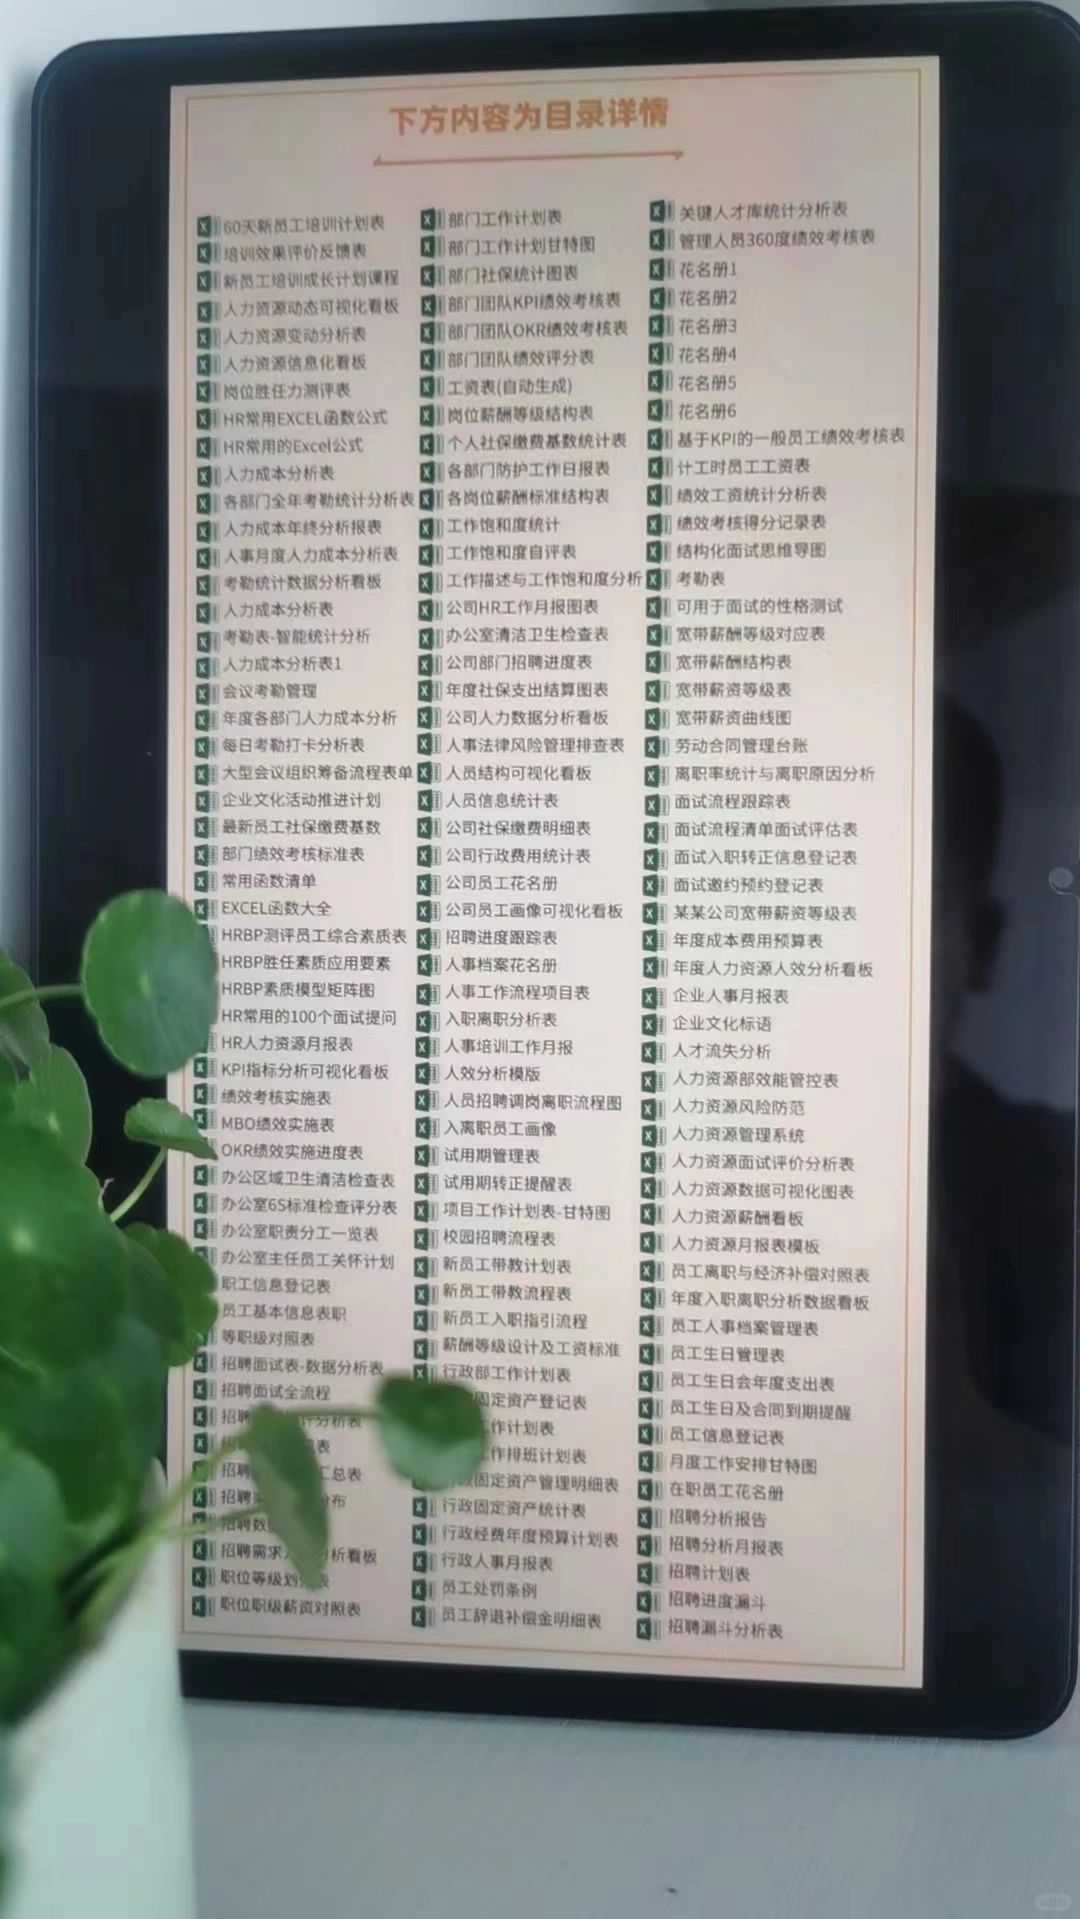 下方内容为目录详情
60天新员工培训计划表
培训效果评价反馈表
新员工培训成长计划课程
人力资源动态可视化看板
人力资源变动分析表
人力资源信息化看板
岗位胜任力测评表
HR常用EXCEL函数公式
HR常用的Excel公式
人力成本分析表
各部门全年考勤统计分析表
人力成本年终分析报表
人事月度人力成本分析表
考勤统计数据分析看板
人力成本分析表
考勤表-智能统计分析
人力成本分析表1
会议考勤管理
年度各部门人力成本分析
每日考勤打卡分析表
大型会议组织筹备流程表单
企业文化活动推进计划
最新员工社保缴费基数
部门绩效考核标准表
常用函数清单
EXCEL函数大全
HRBP测评员工综合素质表
HRBP胜任素质应用要素
HRBP素质模型矩阵图
HR常用的100个面试提问
HR人力资源月报表
KPI指标分析可视化看板
绩效考核实施表
MBO绩效实施表
OKR绩效实施进度表
办公区域卫生清洁检查表
办公室6S标准检查评分表
办公室职责分工一览表
办公室主任员工关怀计划
职工信息登记表
员工基本信息表职
等职级对照表
招聘面试表-数据分析表
招聘面试全流程
招聘 计分析表
表
招聘 汇总表
招聘 布
招聘数
招聘需求 析看板
职位等级划 表
职位职级薪资对照表
部门工作计划表
部门工作计划甘特图
部门社保统计图表
部门团队KPI绩效考核表
部门团队OKR绩效考核表
部门团队绩效评分表
工资表(自动生成)
岗位薪酬等级结构表
个人社保缴费基数统计表
各部门防护工作日报表
各岗位薪酬标准结构表
工作饱和度统计
工作饱和度自评表
工作描述与工作饱和度分析
公司HR工作月报图表
办公室清洁卫生检查表
公司部门招聘进度表
年度社保支出结算图表
公司人力数据分析看板
人事法律风险管理排查表
人员结构可视化看板
人员信息统计表
公司社保缴费明细表
公司行政费用统计表
公司员工花名册
公司员工画像可视化看板
招聘进度跟踪表
人事档案花名册
人事工作流程项目表
入职离职分析表
人事培训工作月报
人效分析模版
人员招聘调岗离职流程图
入离职员工画像
试用期管理表
试用期转正提醒表
项目工作计划表-甘特图
校园招聘流程表
新员工带教计划表
新员工带教流程表
新员工入职指引流程
薪酬等级设计及工资标准
行政部工作计划表
固定资产登记表
工作计划表
工作排班计划表
固定资产管理明细表
行政固定资产统计表
行政经费年度预算计划表
行政人事月报表
员工处罚条例
员工辞退补偿金明细表
关键人才库统计分析表
管理人员360度绩效考核表
花名册1
花名册2
花名册3
花名册4
花名册5
花名册6
基于KPI的一般员工绩效考核表
计工时员工工资表
绩效工资统计分析表
绩效考核得分记录表
结构化面试思维导图
考勤表
可用于面试的性格测试
宽带薪酬等级对应表
宽带薪酬结构表
宽带薪资等级表
宽带薪资曲线图
劳动合同管理台账
离职率统计与离职原因分析
面试流程跟踪表
面试流程清单面试评估表
面试入职转正信息登记表
面试邀约预约登记表
某某公司宽带薪资等级表
年度成本费用预算表
年度人力资源人效分析看板
企业人事月报表
企业文化标语
人才流失分析
人力资源部效能管控表
人力资源风险防范
人力资源管理系统
人力资源面试评价分析表
人力资源数据可视化图表
人力资源薪酬看板
人力资源月报表模板
员工离职与经济补偿对照表
年度入职离职分析数据看板
员工人事档案管理表
员工生日管理表
员工生日会年度支出表
员工生日及合同到期提醒
员工信息登记表
月度工作安排甘特图
在职员工花名册
招聘分析报告
招聘分析月报表
招聘计划表
招聘进度漏斗
招聘漏斗分析表
小红书